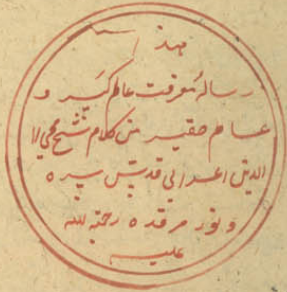 هذا
رسالهٔ معرفت عالم كبير و
عالم صغير من كلام شيخ محي الا
الدين اعرابي قدس سره
و نور مرقده رحمة لله
عليه